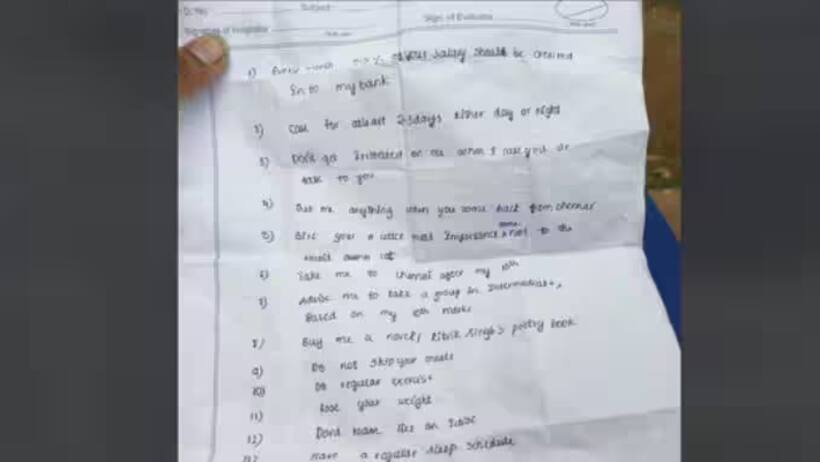 Subject
Sign. of Evaluator
Signature of Invigilator
1) Every month 50% of your salary should be credited
In to my bank
2) Call for atleast 2-3days either day or night
3) Dont get Irritated on me when I call you or
talk to you
4) Get me anything when you come back from chennai
5) Give your a little more Importance not to the
6) Take me to chennai after my 10th
7) Advise me to take a group in Intermediate,
Based on my 10th marks
8) Buy me a novel/ Singh's poetry book
9) Do not skip your meals
10) Do regular exercise
11) lose your weight
12) Dont
13) Have a regular sleep schedule